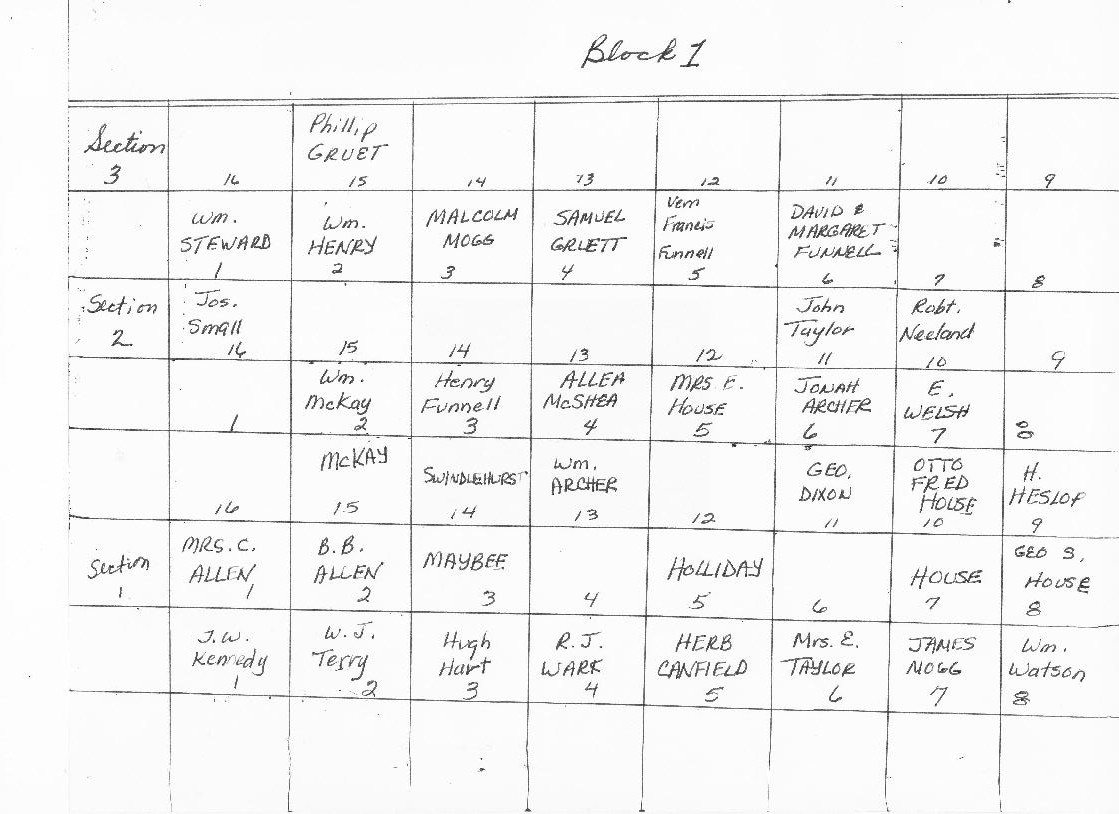 Block 1
Section 3
16
Phillip GRUET 15
14
13
12
11
10
9
Wm. STEWARD 1
Wm. HENRY 2
MALCOLM MOGG 3
SAMUEL GRUETT 4
Vern Francis Funnell 5
DAVID & MARGARET FUNNELL 6
7
8
Section 2
Jos. Small 16
15
14
13
12
John Taylor 11
Robt. Neeland 10
9
1
Wm. McKay 2
Henry Funnell 3
ALLEA McSHEA 4
MRS E. HOUSE 5
JONAH ARCHER 6
E. WELSH 7
8
16
McKAY 15
SWINDLEHURST 14
Wm. ARCHER 13
12
GEO. DIXON 11
OTTO FRED HOUSE 10
H. HESLOP 9
Section 1
MRS. C. ALLEN 1
B.B. ALLEN 2
MAYBEE 3
4
HOLLIDAY 5
6
HOUSE 7
GEO S. HOUSE 8
J.W. Kennedy 1
W.J. Terry 2
Hugh Hart 3
R.J. WARK 4
HERB CANFIELD 5
Mrs. E. TAYLOR 6
JAMES MOGG 7
Wm. Watson 8